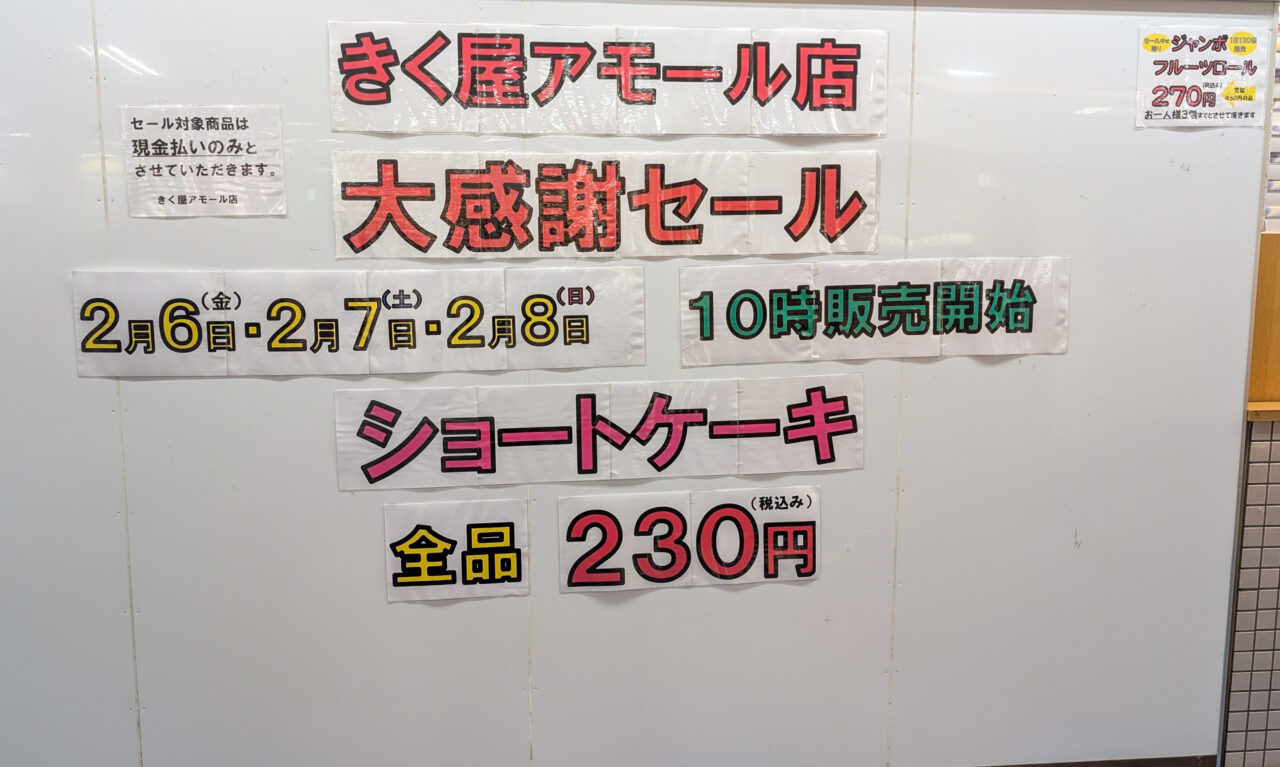 きく屋アモール店
大感謝セール
セール対象商品は
現金払いのみと
させていただきます。
きく屋アモール店
2月6日(金)・2月7日(土)・2月8日(日)
10時販売開始
ショートケーキ
全品 230円(税込み)
ジャンボ
フルーツロール
270円(税込み)
お一人様3個までとさせて頂きます